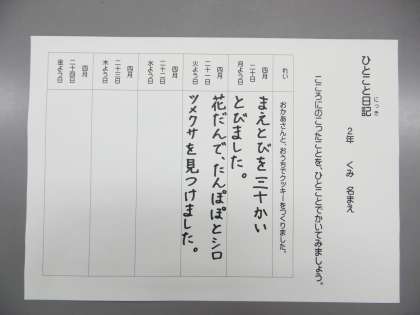 ひとこと日記
にっき
2年　くみ　名まえ
こころにのこったことを、ひとことでかいてみましょう。
れい
おかあさんと、おうちでクッキーをつくりました。
四月
二十日
月よう日
まえとびを三十かい
とびました。
四月
二十一日
火よう日
花だんで、たんぽぽとシロ
ツメクサを見つけました。
四月
二十二日
水よう日
四月
二十三日
木よう日
四月
二十四日
金よう日